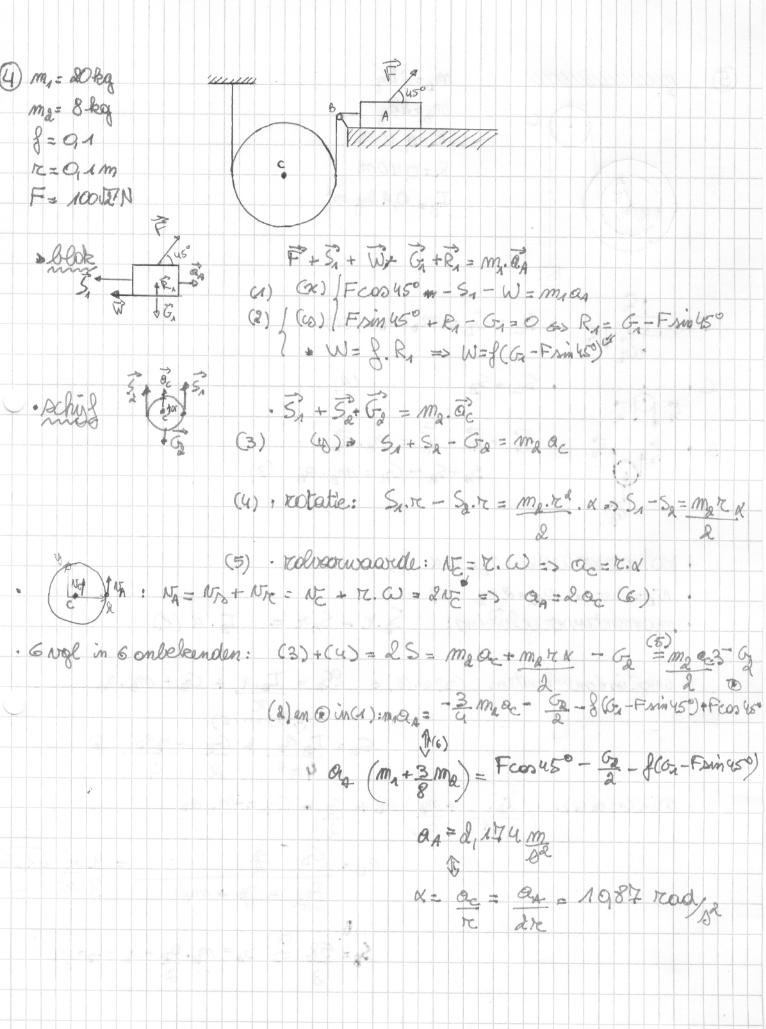 ④ m₁ = 20 kg
m₂ = 8 kg
f = 0,1
r = 0,1 m
F = 100√2 N
F⃗
45°
B
A
C
• blok
F⃗
45°
S⃗₁
W⃗
R⃗₁
G⃗₁
a⃗A
F⃗ + S⃗₁ + W⃗ + G⃗₁ + R⃗₁ = m₁.a⃗A
(1) (x) { Fcos45° - S₁ - W = m₁a₁
(2) (y) { Fsin45° + R₁ - G₁ = 0 ⇔ R₁ = G₁ - Fsin45°
• W = f.R₁ ⇒ W = f(G₁ - Fsin45°)
• schijf
S⃗₂
a⃗C
S⃗₁
C
α
G⃗₂
• S⃗₁ + S⃗₂ + G⃗₂ = m₂.a⃗C
(3) (y) S₁ + S₂ - G₂ = m₂ aC
(4) • rotatie: S₁.r - S₂.r = m₂.r²/2 . α ⇒ S₁ - S₂ = m₂ r/2 α
(5) • rolvoorwaarde: vC = r.ω ⇒ aC = r.α
C
vA
: vA = + = vC + r.ω = 2vC ⇒ aA = 2aC (6)
• 6 vgl in 6 onbekenden: (3)+(4) = 2S = m₂aC + m₂rα/2 - G₂ (5)= m₂aC3/2 - G₂
(2) en in (1): m₁aA = -3/4 m₂aC - G₂/2 - f(G₁ - Fsin45°) + Fcos45°
⇕(6)
aA (m₁ + 3/8 m₂) = Fcos45° - G₂/2 - f(G₁ - Fsin45°)
aA = 2,174 m/s²
⇕
α = aC/r = aA/2r = 10,87 rad/s²